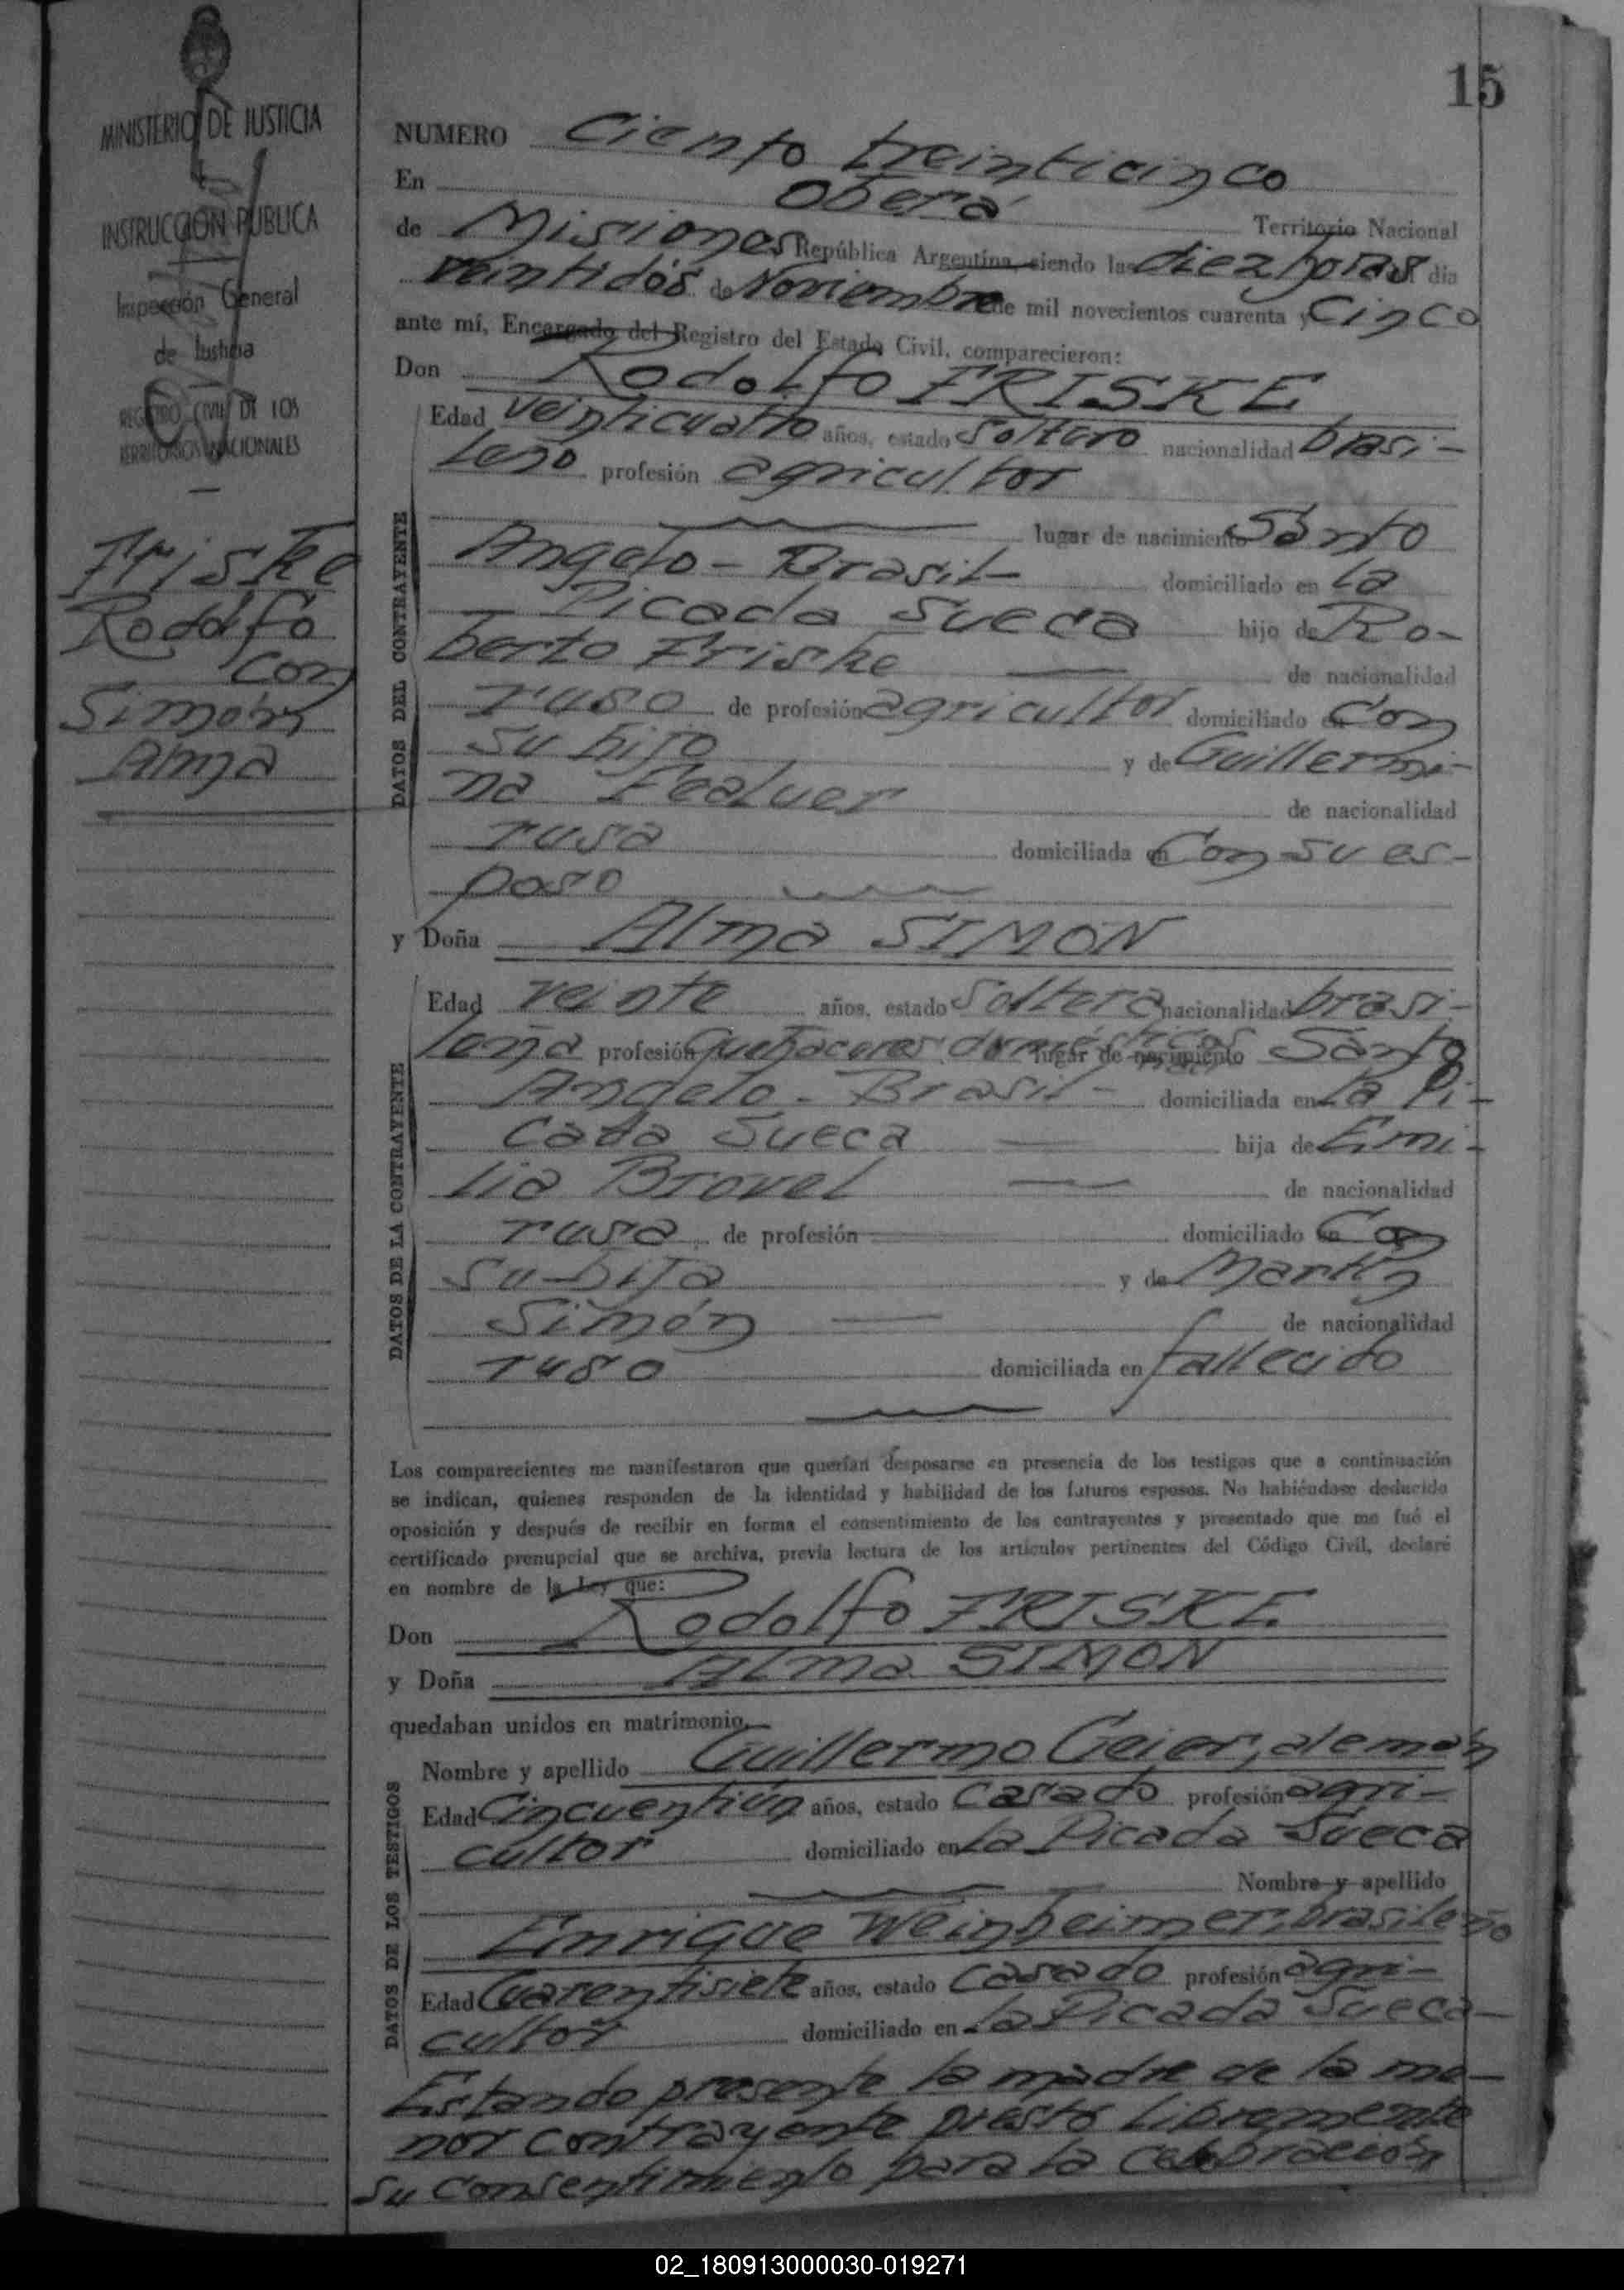 15
MINISTERIO DE JUSTICIA
INSTRUCCION PUBLICA
Inspección General
de Justicia
REGISTRO CIVIL DE LOS
TERRITORIOS NACIONALES
Friske
Rodolfo
con
Simón
Alma
NUMERO Ciento treinticinco
En Oberá Territorio Nacional
de Misiones República Argentina, siendo las diez horas del día
veintidós de Noviembre de mil novecientos cuarenta y Cinco
ante mí, Encargado del Registro del Estado Civil, comparecieron:
Don Rodolfo FRISKE
DATOS DEL CONTRAYENTE
Edad veinticuatro años, estado Soltero nacionalidad brasi-
leño profesión agricultor
lugar de nacimiento Santo
Angelo - Brasil - domiciliado en la
Picada Sueca hijo de Ro-
berto Friske de nacionalidad
ruso de profesión agricultor domiciliado en Con
su hijo y de Guillermi-
na de nacionalidad
rusa domiciliada en Con su es-
poso
y Doña Alma SIMON
DATOS DE LA CONTRAYENTE
Edad veinte años, estado Soltera nacionalidad brasi-
leña profesión Quehaceres domésticos lugar de nacimiento Santo
Angelo - Brasil - domiciliada en la Pi-
cada Sueca hija de Emi-
lia Brovel de nacionalidad
rusa de profesión domiciliado en Con
su hija y de Martin
Simón de nacionalidad
ruso domiciliada en fallecido
Los comparecientes me manifestaron que querían desposarse en presencia de los testigos que a continuación
se indican, quienes responden de la identidad y habilidad de los futuros esposos. No habiéndose deducido
oposición y después de recibir en forma el consentimiento de los contrayentes y presentado que me fué el
certificado prenupcial que se archiva, previa lectura de los artículos pertinentes del Código Civil, declaré
en nombre de la Ley que:
Don Rodolfo FRISKE
y Doña Alma SIMON
quedaban unidos en matrimonio.
DATOS DE LOS TESTIGOS
Nombre y apellido Guillermo Geier, alemán
Edad Cincuentiún años, estado Casado profesión agri-
cultor domiciliado en la Picada Sueca
Nombre y apellido
Enrique Weinheimer, brasileño
Edad Cuarentisiete años, estado Casado profesión agri-
cultor domiciliado en la Picada Sueca-
Estando presente la madre de la me-
nor contrayente prestó libremente
su consentimiento para la celebración
02_180913000030-019271